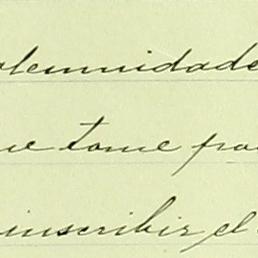 olemnidade
ue tome par
inscribir el